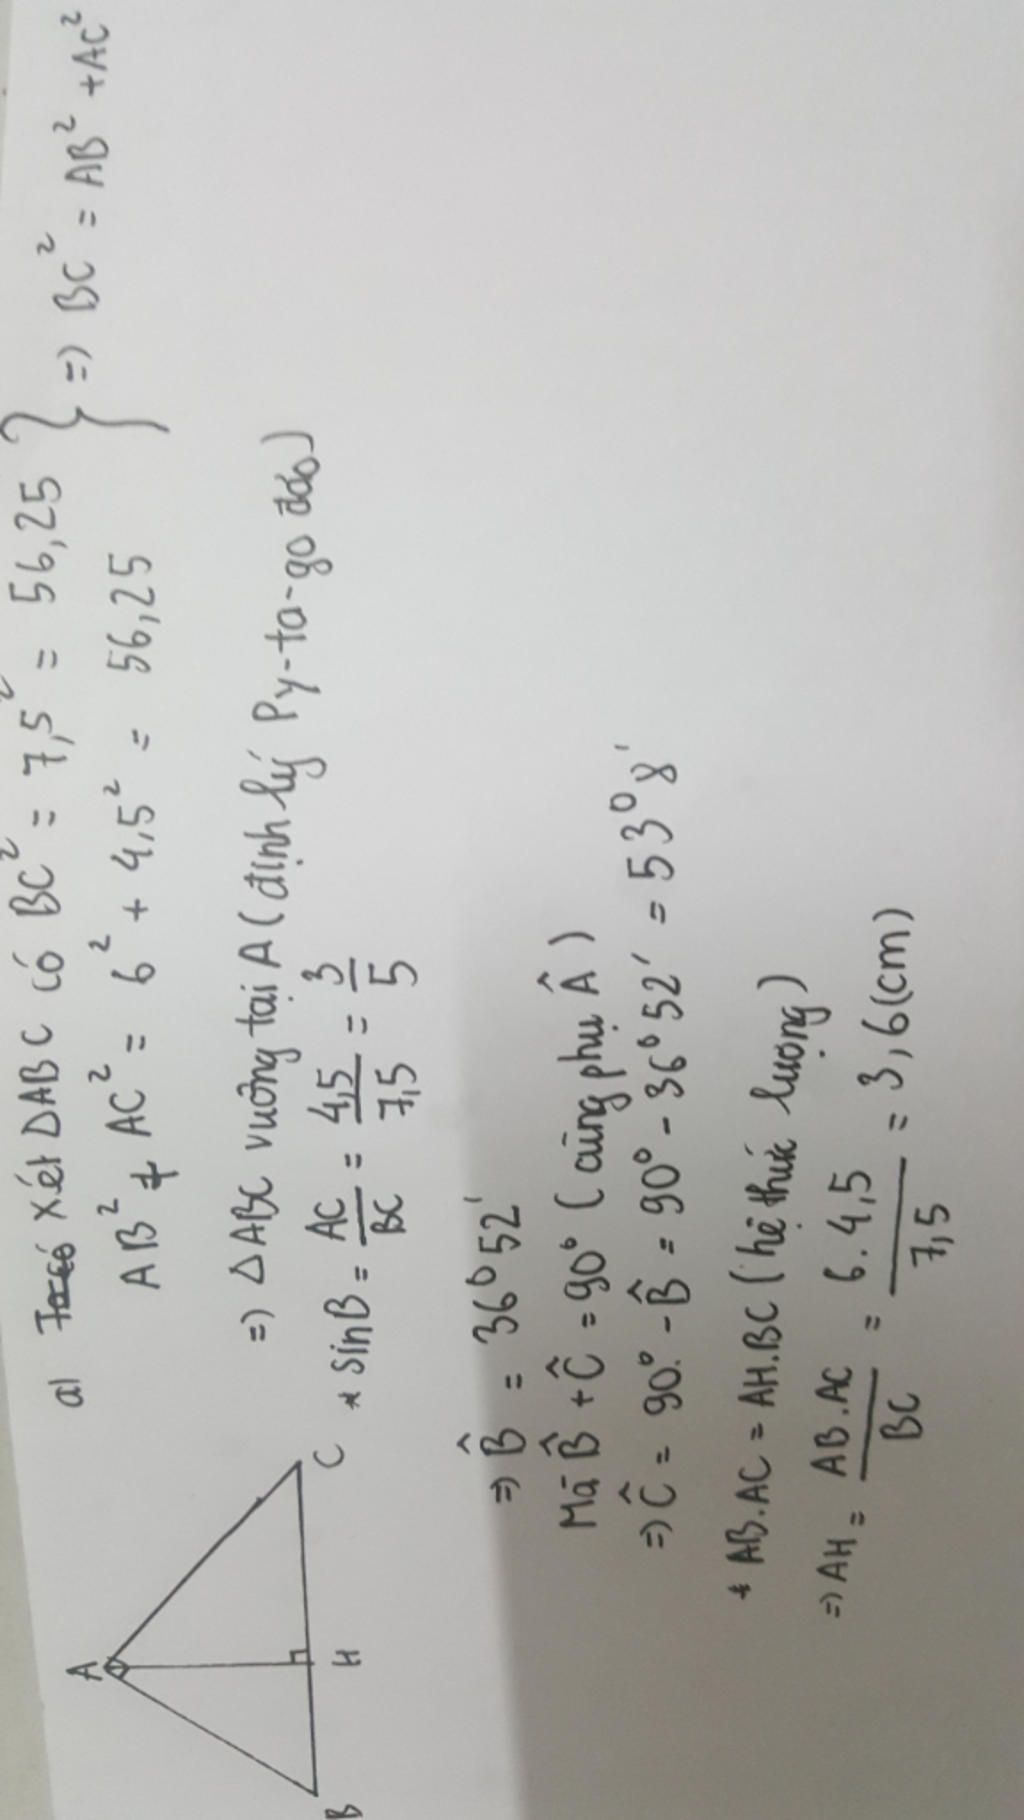 a) Ta có Xét ΔABC có BC² = 7,5² = 56,25
AB² + AC² = 6² + 4,5² = 56,25
} => BC² = AB² + AC²
=> ΔABC vuông tại A (định lý Py-ta-go đảo)
* sinB = AC/BC = 4,5/7,5 = 3/5
=> B̂ = 36°52'
Mà B̂ + Ĉ = 90° (cùng phụ Â)
=> Ĉ = 90° - B̂ = 90° - 36°52' = 53°8'
* AB.AC = AH.BC (hệ thức lượng)
=> AH = AB.AC/BC = 6.4,5/7,5 = 3,6(cm)
A
B
H
C